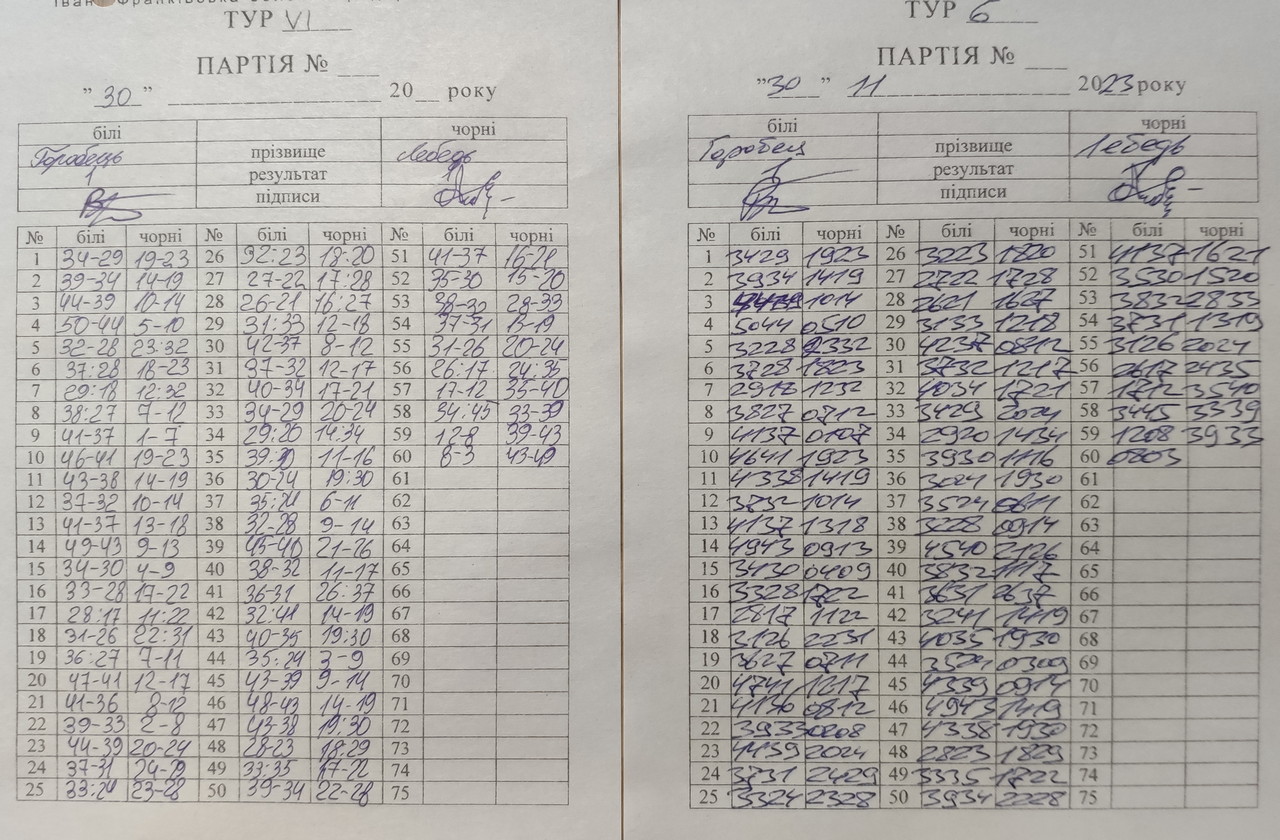 ТУР VI
ПАРТІЯ № ___
"30" ___ 20__ року
білі чорні
Горобець прізвище Лебедь
1 результат 1
підписи
№ білі чорні № білі чорні № білі чорні
1 34-29 19-23 26 32:23 18:20 51 41-37 16-21
2 39-34 14-19 27 27-22 17:28 52 35-30 15-20
3 44-39 10-14 28 26-21 16:27 53 38-32 28-33
4 50-44 5-10 29 31:33 12-18 54 37-31 13-19
5 32-28 23:32 30 42-37 8-12 55 31-26 20-24
6 37:28 18-23 31 37-32 12-17 56 26:17 24:35
7 29:18 12:32 32 40-34 17-21 57 17-12 35-40
8 38:27 7-12 33 34-29 20-24 58 34:45 33-39
9 41-37 1-7 34 29:20 14:34 59 12-8 39-43
10 46-41 19-23 35 39:30 11-16 60 8-3 43-49
11 43-38 14-19 36 30-24 19:30 61
12 37-32 10-14 37 35:24 6-11 62
13 41-37 13-18 38 32-28 9-14 63
14 49-43 9-13 39 45-40 21-26 64
15 34-30 4-9 40 38-32 11-17 65
16 33-28 17-22 41 36-31 26:37 66
17 28:17 11:22 42 32:41 14-19 67
18 31-26 22:31 43 40-35 19:30 68
19 36:27 7-11 44 35:24 3-9 69
20 47-41 12-17 45 43-39 9-14 70
21 41-36 8-12 46 48-43 14-19 71
22 39-33 2-8 47 43-38 19:30 72
23 44-39 20-24 48 28-23 18:29 73
24 37-31 24-29 49 33:35 17-22 74
25 33:24 23-28 50 39-34 22-28 75
ТУР 6
ПАРТІЯ № ___
"30" 11 2023 року
білі чорні
Горобец прізвище Лебедь
1 результат 1
підписи
№ білі чорні № білі чорні № білі чорні
1 3429 1923 26 3223 1820 51 4137 1621
2 3934 1419 27 2722 1728 52 3530 1520
3 1014 28 2621 1627 53 3832 2833
4 5044 0510 29 3133 1218 54 3731 1319
5 3228 2332 30 4237 0812 55 3126 2024
6 3728 1823 31 3732 1217 56 2617 2435
7 2918 1232 32 4034 1721 57 1712 3540
8 3827 0712 33 3429 2024 58 3445 3339
9 4137 0107 34 2920 1434 59 1208 3933
10 4641 1923 35 3930 1116 60 0803
11 4338 1419 36 3024 1930 61
12 3732 1014 37 3524 0611 62
13 4137 1318 38 3228 0914 63
14 4943 0913 39 4540 2126 64
15 3430 0409 40 3832 1117 65
16 3328 1722 41 3631 2637 66
17 2817 1122 42 3241 1419 67
18 3126 2231 43 4035 1930 68
19 3627 0711 44 3524 0309 69
20 4741 1217 45 4339 0914 70
21 4136 0812 46 4943 1419 71
22 3933 0208 47 4338 1930 72
23 4439 2024 48 2823 1829 73
24 3731 2429 49 3335 1722 74
25 3324 2328 50 3934 2228 75